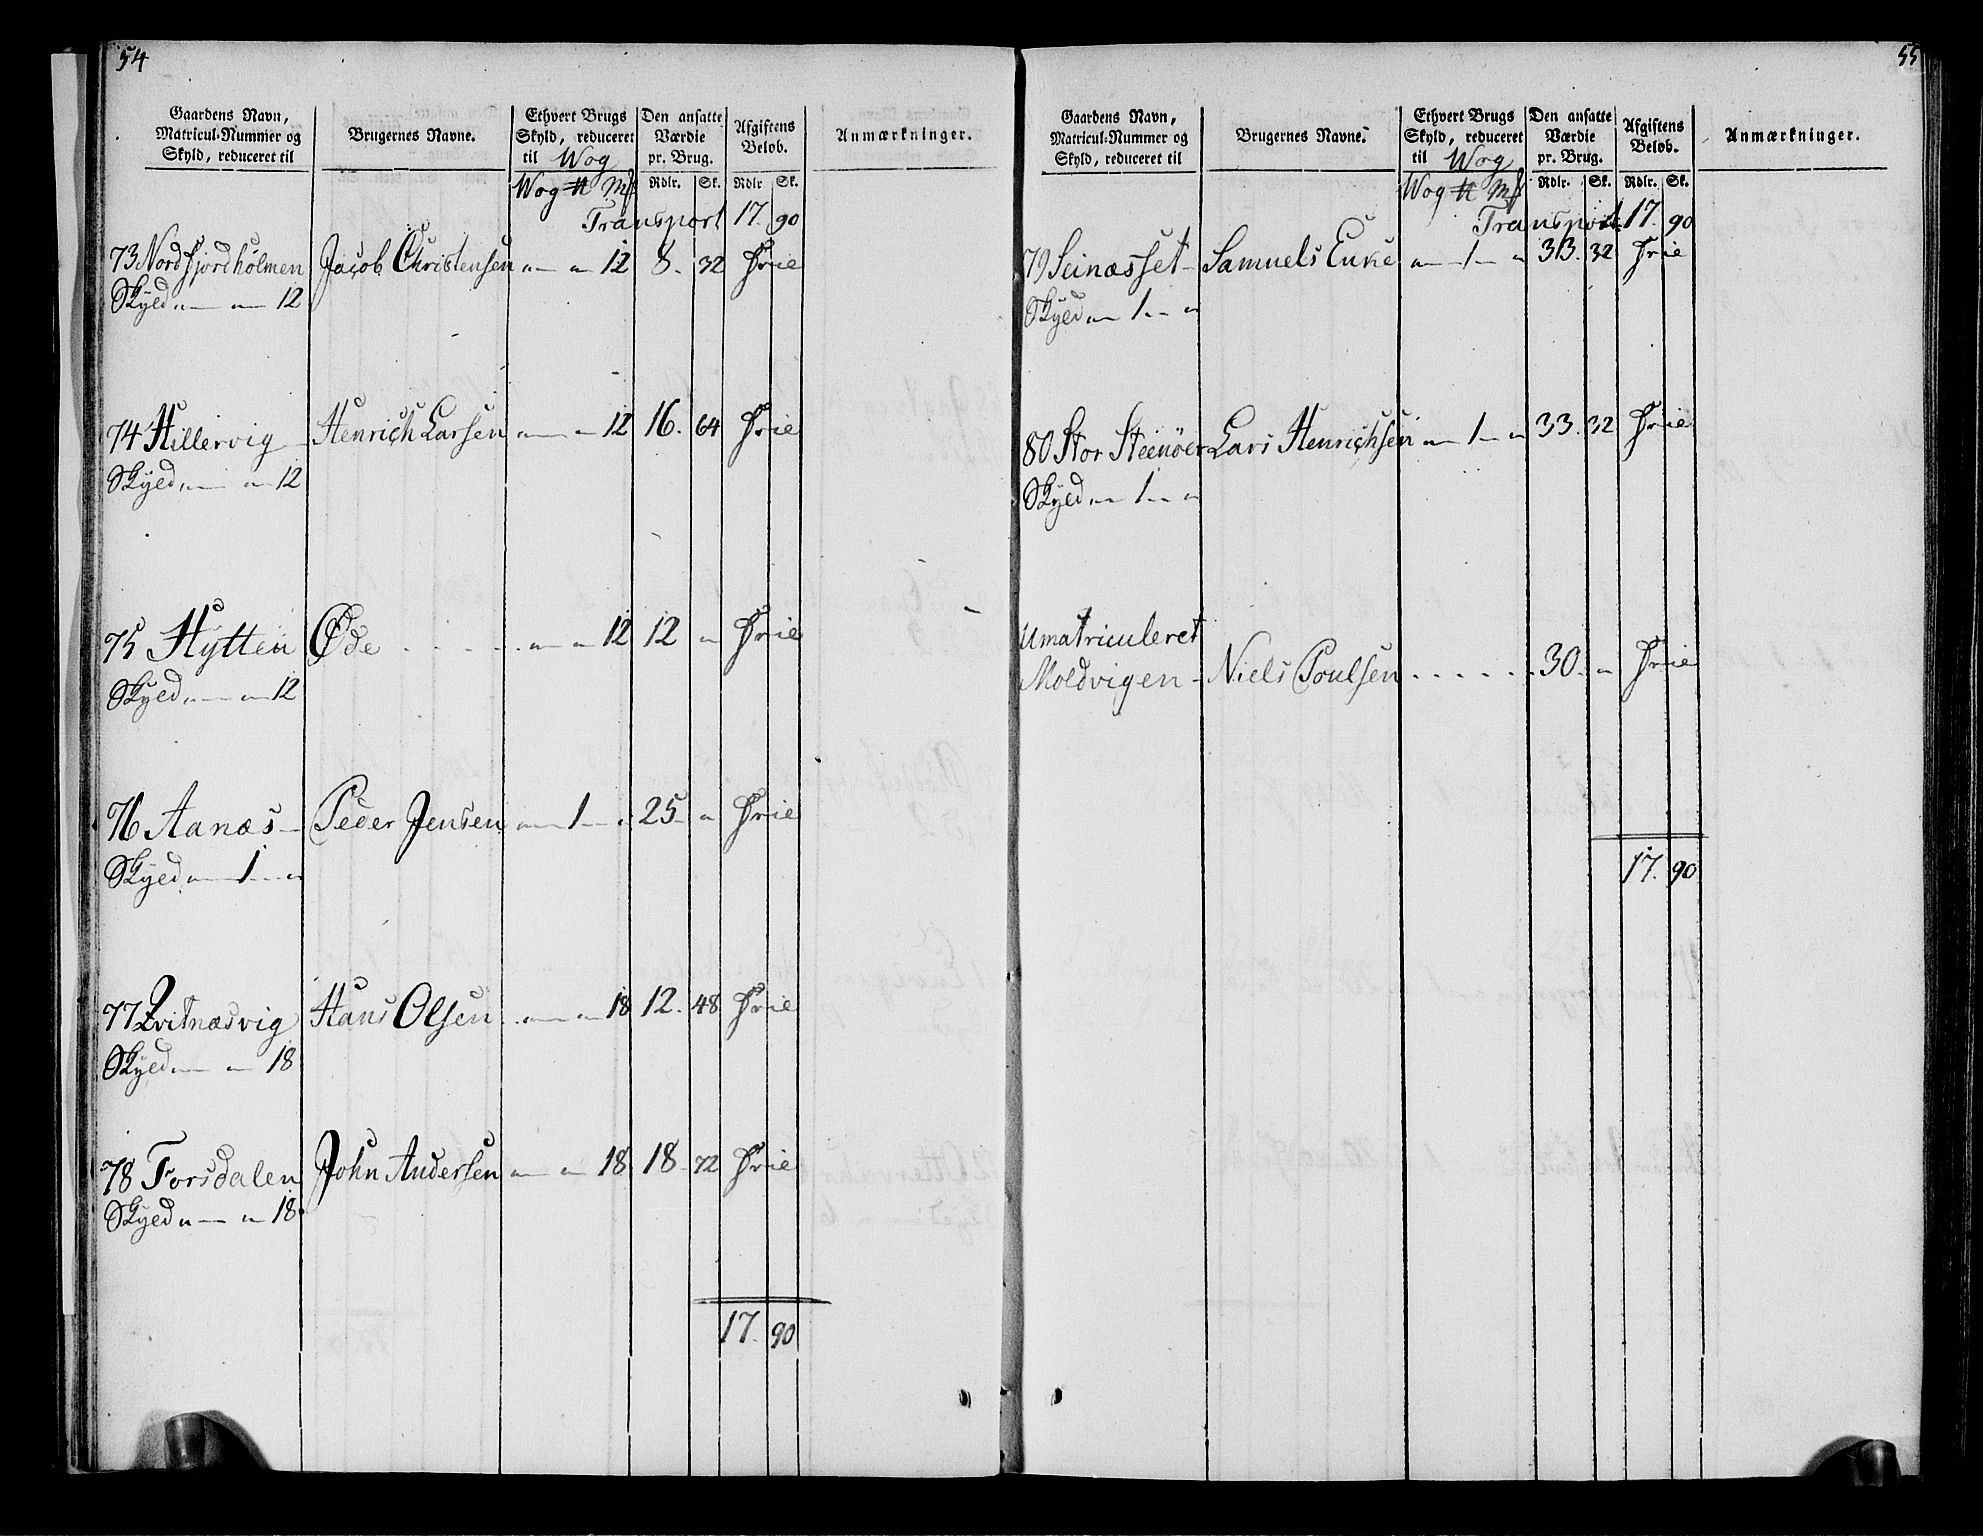 54
Gaardens Navn,
Matricul-Nummer og
Skyld, reduceret til
Brugernes Navne.
Ethvert Brugs
Skyld, reduceret
til Wog
Den ansatte
Værdie
pr. Brug.
Afgiftens
Beløb.
Anmærkninger.
Wog ℔ Mk Rdlr. Sk. Rdlr Sk.
Transport 17. 90
73 Nordfjordholmen Jacob Christensen " — " 12 8. 32 Frie
Skyld " — " — 12
74 Hillervig Henrich Larsen " — " 12 16. 64 Frie
Skyld " — " — 12
75 Hytten Øde . . . . . " — " 12 12 " Frie
Skyld " — " — 12
76 Aanæs — Peder Jensen " — 1 — " 25 " Frie
Skyld " — 1 — "
77 Qvitnæsvig Hans Olsen " — " 18 12. 48 Frie
Skyld " — " — 18
78 Forsdalen John Andersen " — " 18 18 72 Frie
Skyld " — " — 18
17. 90
55
Gaardens Navn,
Matricul-Nummer og
Skyld, reduceret til
Brugernes Navne.
Ethvert Brugs
Skyld, reduceret
til Wog
Den ansatte
Værdie
pr. Brug.
Afgiftens
Beløb.
Anmærkninger.
Wog ℔ Mk Rdlr. Sk. Rdlr. Sk.
Transport 17. 90
79 Seinæsset — Samuels Enke " — 1 — " 33. 32 Frie
Skyld " — 1 — "
80 Stor Steenøer Lars Henrichsen " — 1 — " 33. 32 Frie
Skyld " — 1 — "
Umatriculeret
Moldvigen — Niels Poulsen . . . . . . 30. " Frie
17. 90